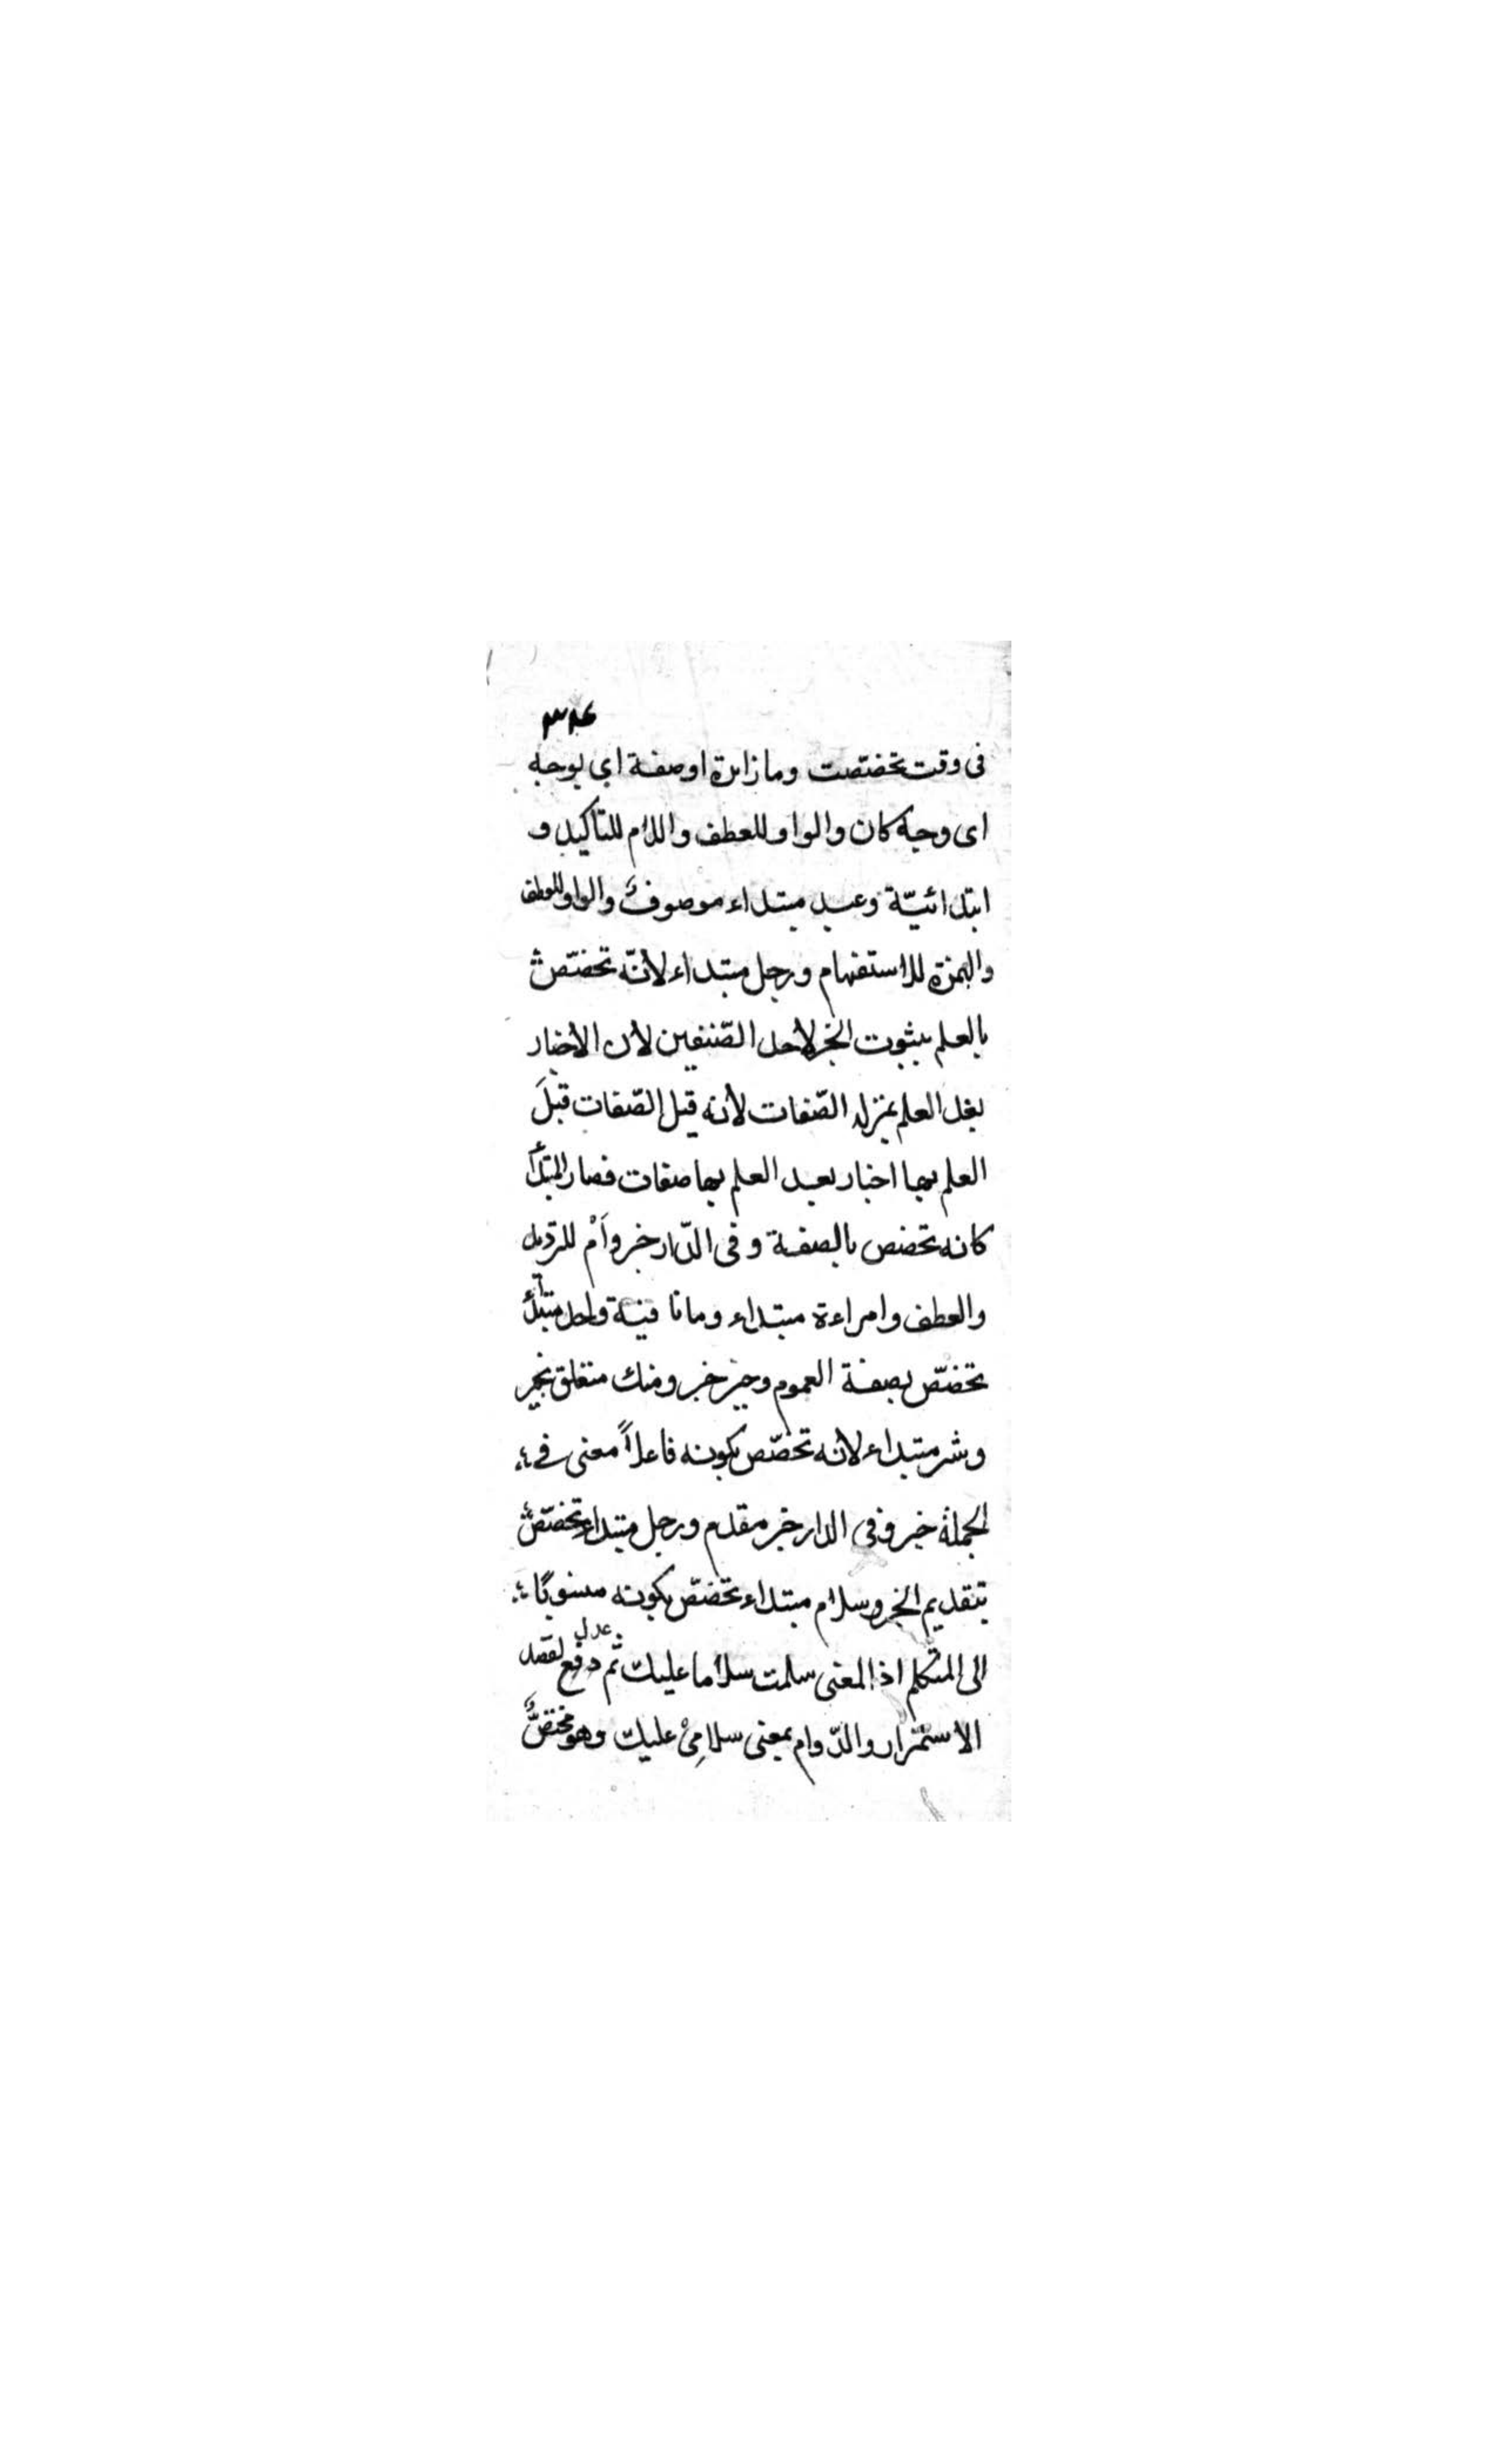 فى وقت تخصّصت وما زائدة او صفة اى بوجه
اى وجه كان والواو للعطف واللام للتاكيد و
ابتدائيّة وعبد مبتداء موصوف والواو للعطف
والهمزة للاستفهام ورجل مبتداء لأنّه تخصّص
بالعلم بثبوت الخبر لأحد الصّنفين لأن الأخبار
بعد العلم بمنزلة الصّفات لأنه قيل الصّفات قبلَ
العلم بها اخبار بعد العلم بها صفات فصار المبتدأ
كانه تخصص بالصفة وفى الدّار خبر وأمْ للترديد
والعطف وامراءة مبتداء وما نافية واحد مبتدأ
تخصّص بصفة العموم وخير خبر ومنك متعلق بخير
وشر مبتداء لأنه تخصّص بكونه فاعلاً معنى فى
الجملة خبر وفى الدار خبر مقدم ورجل مبتداء تخصّص
بتقديم الخبر وسلام مبتداء تخصّص بكونه منسوبًا
الى المتكلم اذ المعنى سلمت سلاما عليك ثم عدل رفع لقصد
الاستمرار والدّوام بمعنى سلامِىْ عليك وهو مختصٌّ